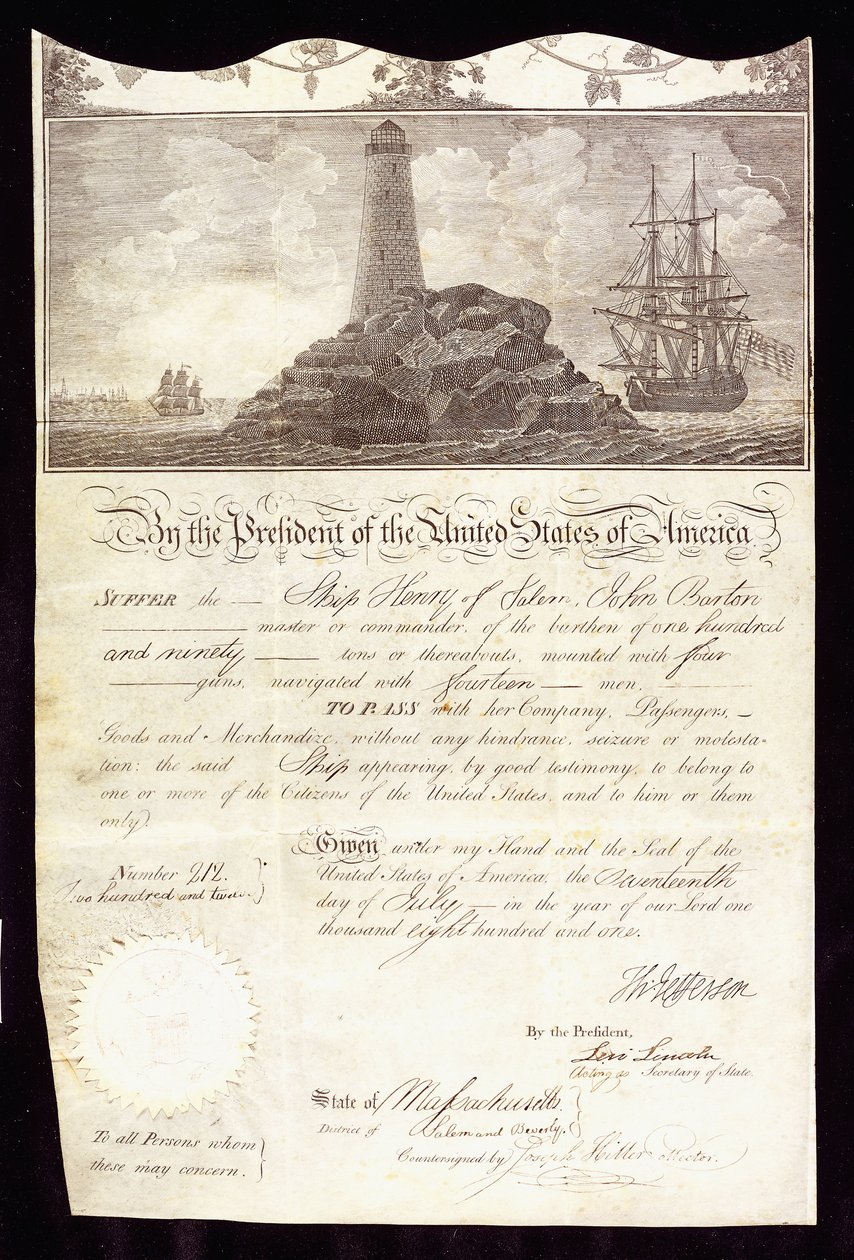 By the President of the United States of America
SUFFER the — Ship Henry of Salem, John Barton
master or commander, of the burthen of one hundred
and ninety — tons or thereabouts, mounted with four
guns, navigated with fourteen — men,
TO PASS with her Company, Passengers, —
Goods and Merchandize, without any hindrance, seizure or molesta-
tion: the said Ship appearing, by good testimony, to belong to
one or more of the Citizens of the United States, and to him or them
only.
Given under my Hand and the Seal of the
United States of America, the Seventeenth
day of July — in the year of our Lord one
thousand eight hundred and one.
Number 212.
Two hundred and twelve.
Th: Jefferson
By the President,
Levi Lincoln
Acting as Secretary of State.
State of Massachusetts.
District of Salem and Beverly.
Countersigned by Joseph Hiller Collector.
To all Persons whom
these may concern.